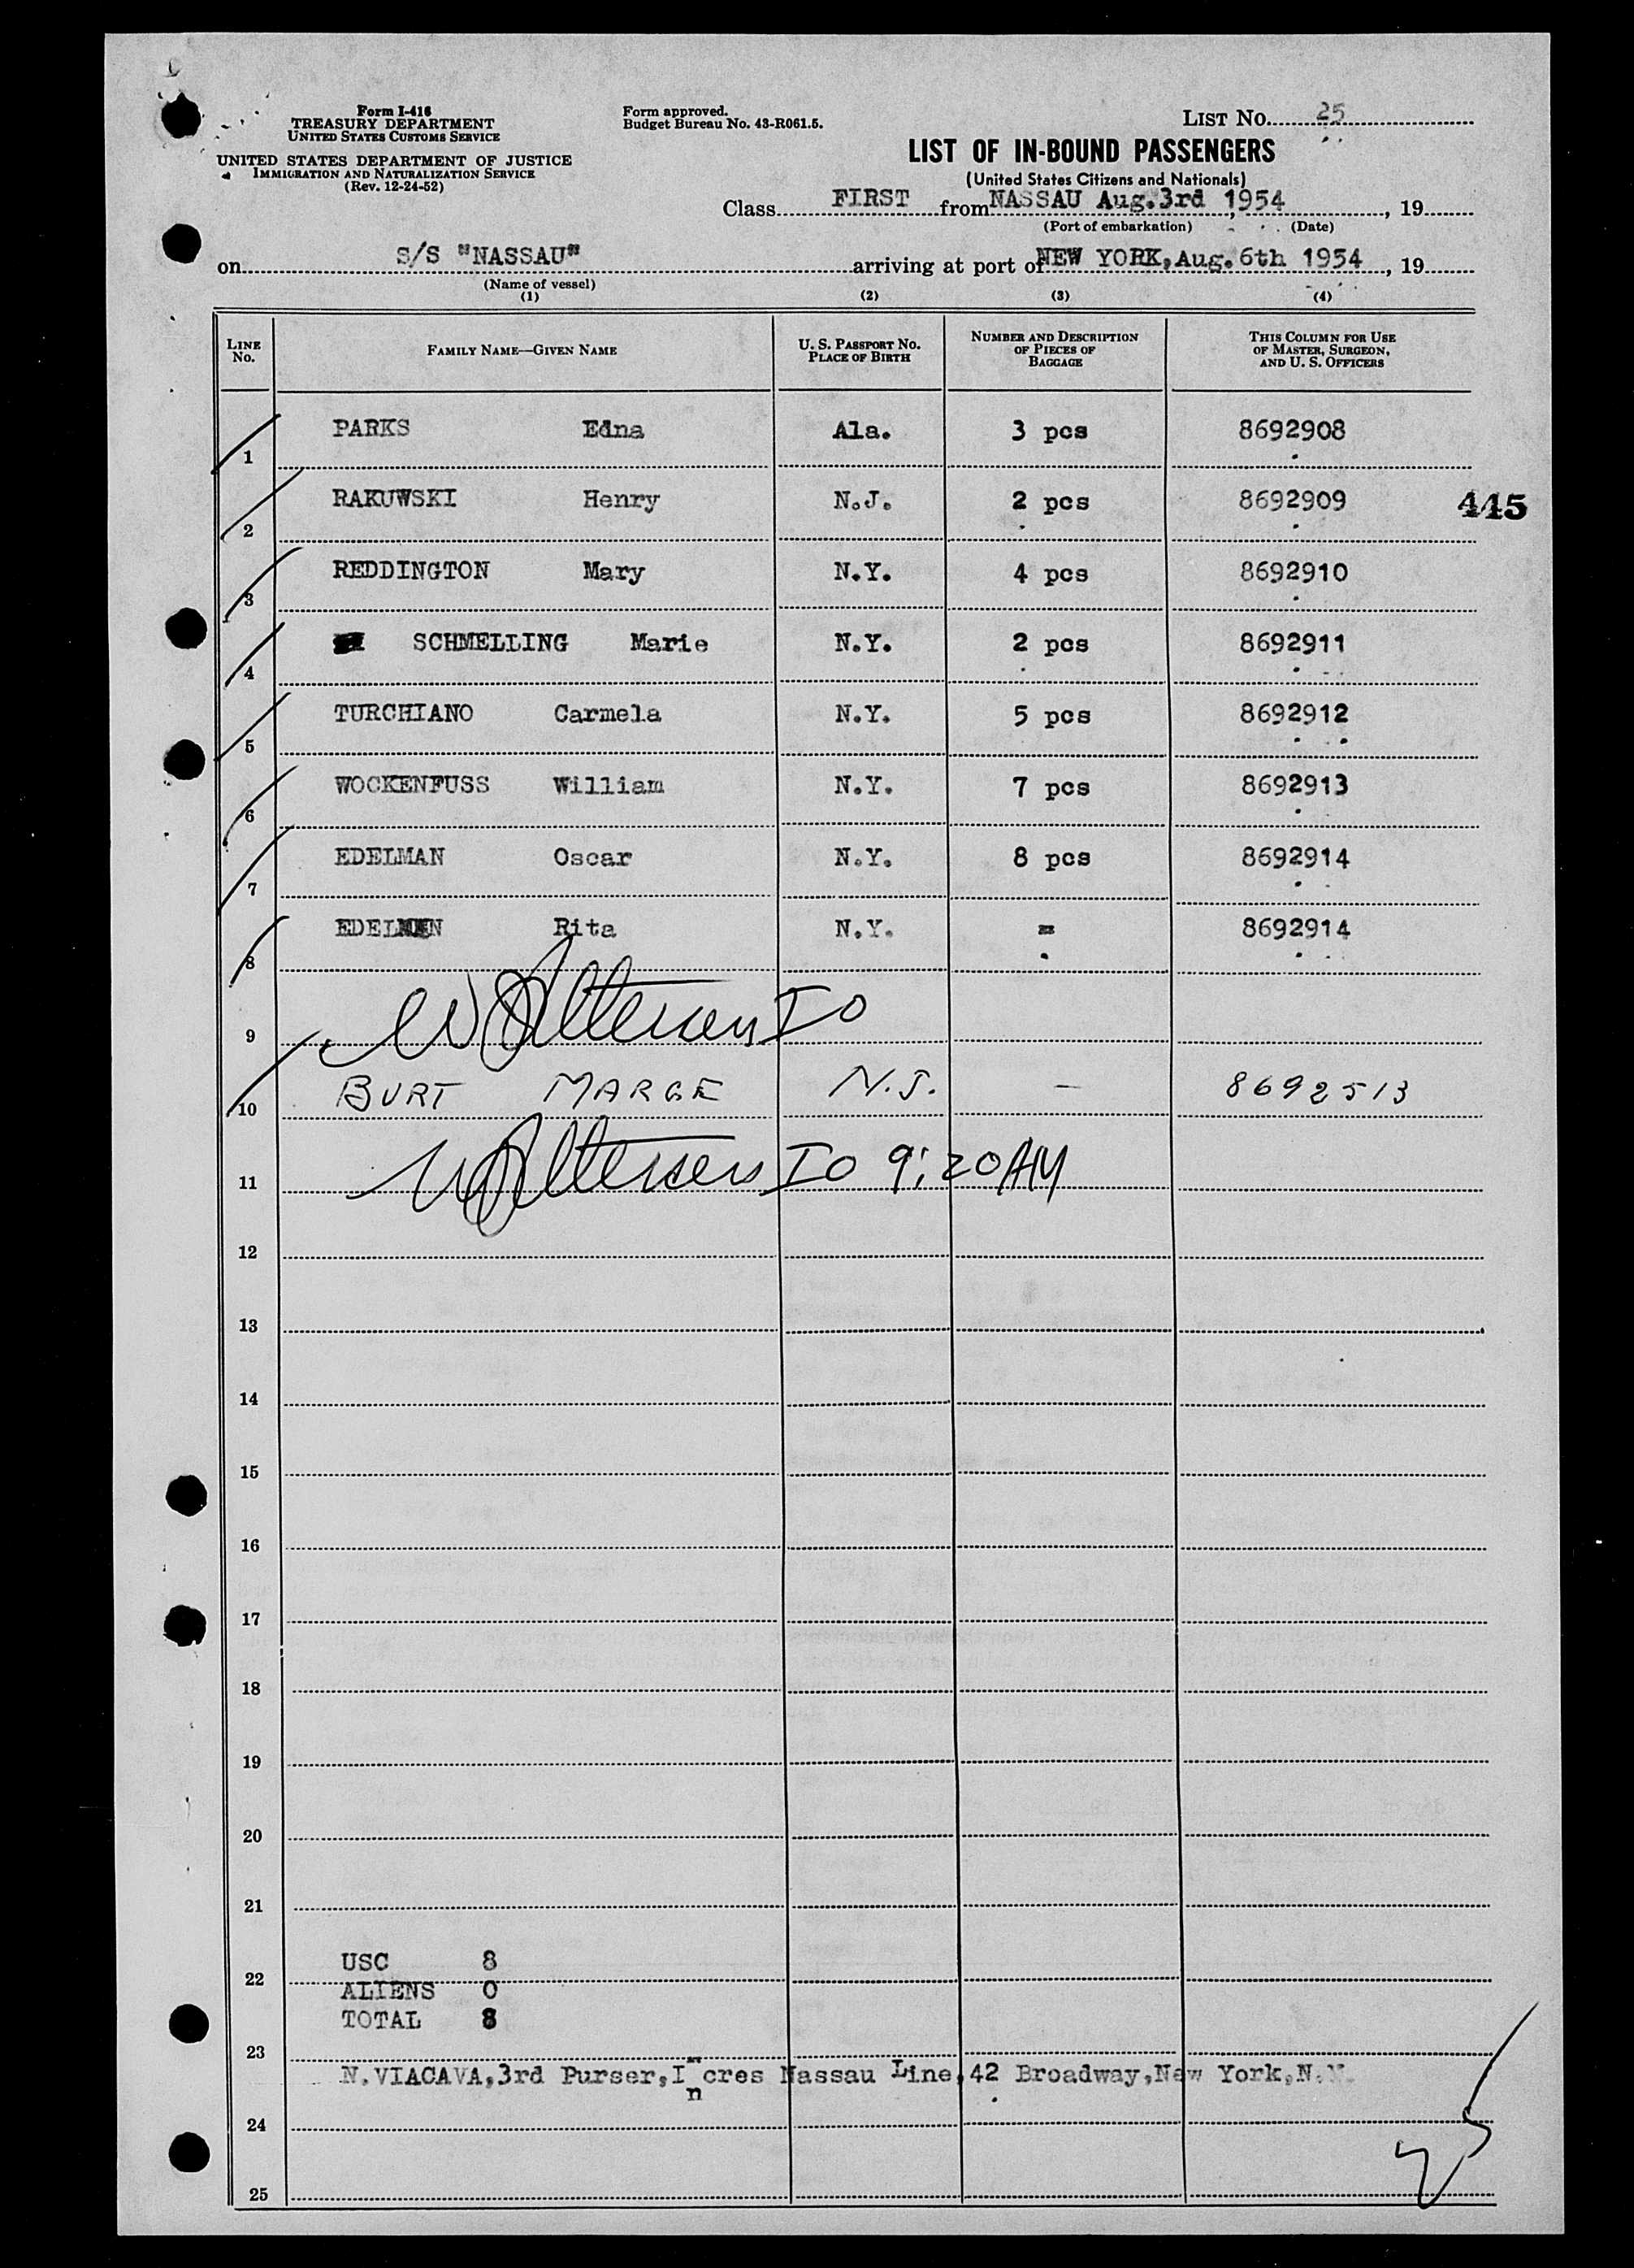 Form I-418
TREASURY DEPARTMENT
UNITED STATES CUSTOMS SERVICE
UNITED STATES DEPARTMENT OF JUSTICE
IMMIGRATION AND NATURALIZATION SERVICE
(Rev. 12-24-52)
Form approved.
Budget Bureau No. 43-R061.5.
LIST No. 25
LIST OF IN-BOUND PASSENGERS
(United States Citizens and Nationals)
Class FIRST from NASSAU Aug.3rd, 1954, 19
(Port of embarkation) (Date)
on S/S "NASSAU" arriving at port of NEW YORK, Aug.6th 1954, 19
(Name of vessel)
(1) (2) (3) (4)
LINE No. FAMILY NAME—GIVEN NAME U. S. PASSPORT No. PLACE OF BIRTH NUMBER AND DESCRIPTION OF PIECES OF BAGGAGE THIS COLUMN FOR USE OF MASTER, SURGEON, AND U. S. OFFICERS
1 PARKS Edna Ala. 3 pcs 8692908
2 RAKUWSKI Henry N.J. 2 pcs 8692909 445
3 REDDINGTON Mary N.Y. 4 pcs 8692910
4 SCHMELLING Marie N.Y. 2 pcs 8692911
5 TURCHIANO Carmela N.Y. 5 pcs 8692912
6 WOCKENFUSS William N.Y. 7 pcs 8692913
7 EDELMAN Oscar N.Y. 8 pcs 8692914
8 Rita N.Y. = 8692914
9 IO
10 BURT MARGE N.J. — 8692513
11 IO 9:20AM
12
13
14
15
16
17
18
19
20
21
USC 8
22
ALIENS 0
TOTAL 8
23
N.VIACAVA,3rd Purser,Incres Nassau Line,42 Broadway,New York,N.Y.
24
25
25